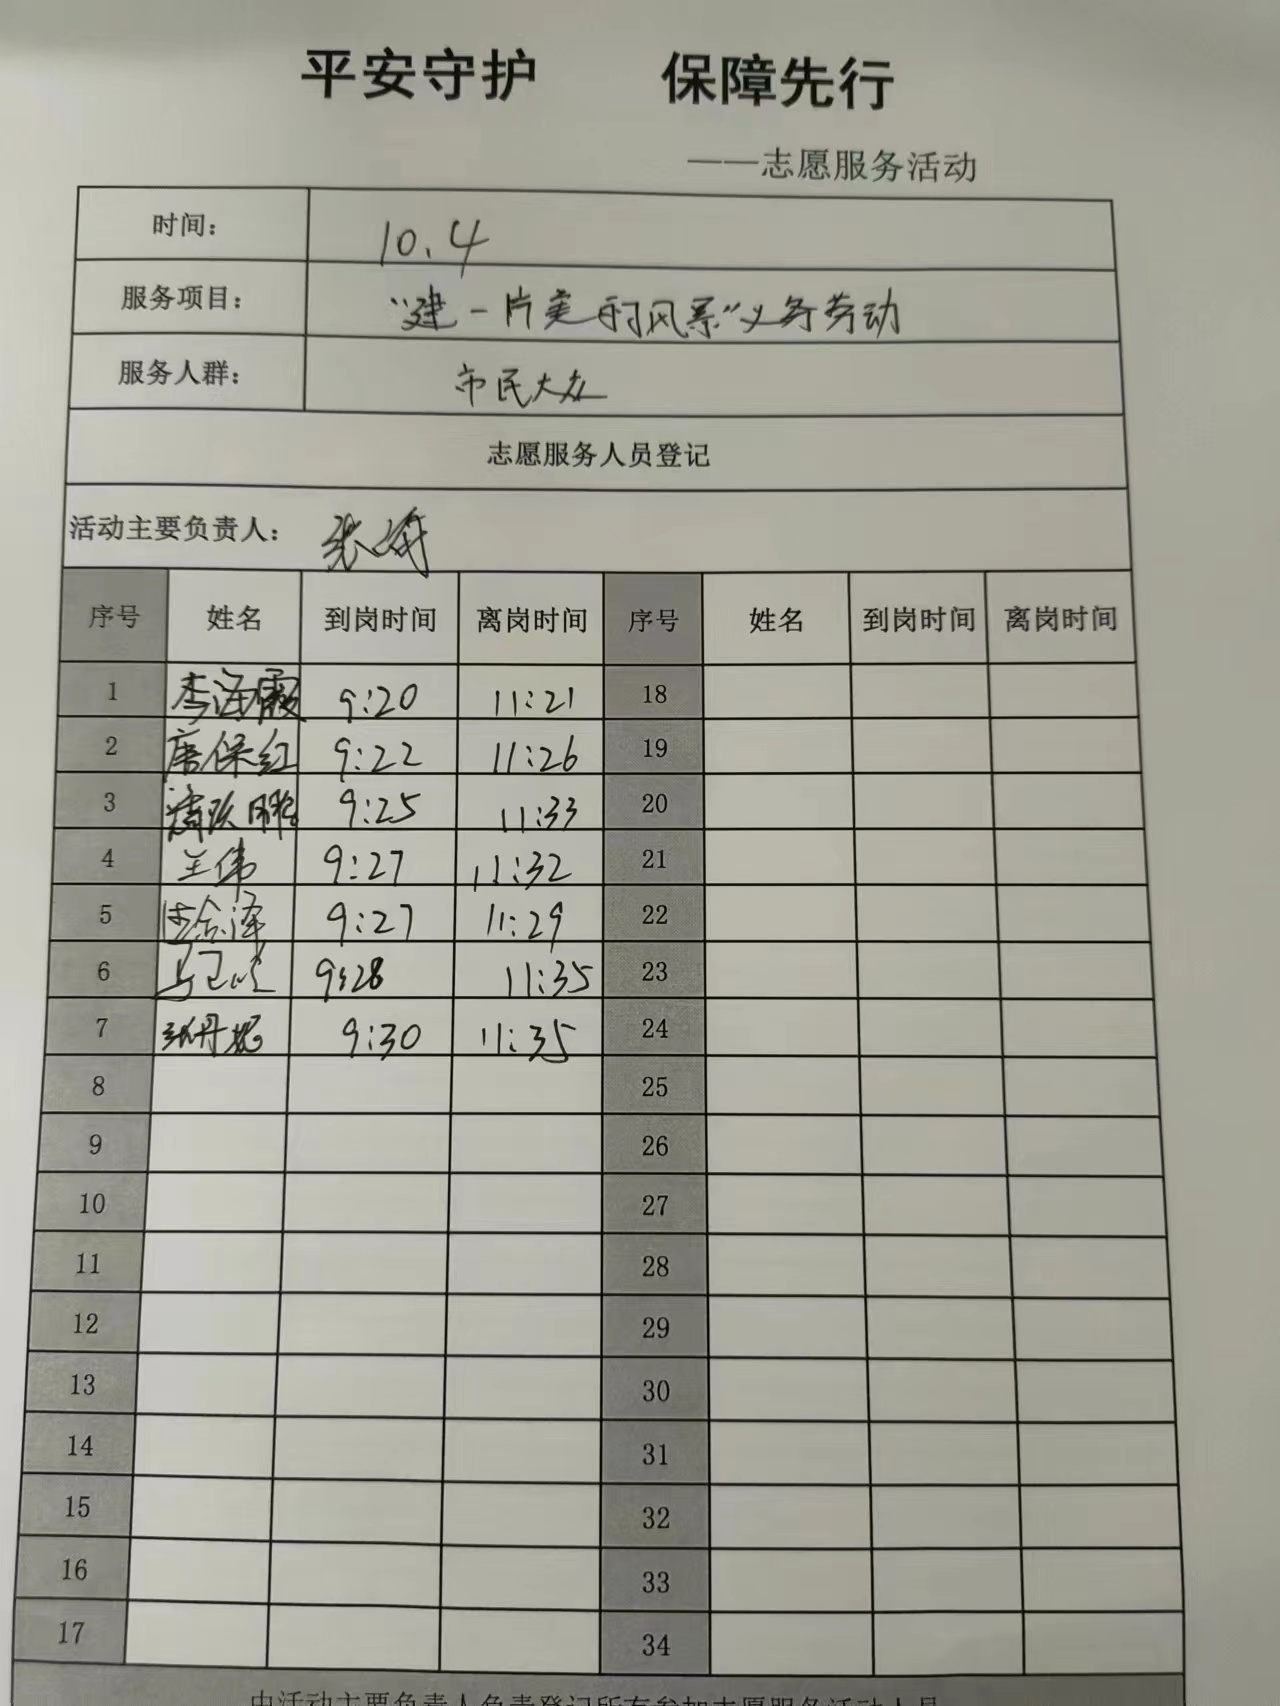 平安守护 保障先行
——志愿服务活动
时间： 10.4
服务项目： “建一片美的风景”义务劳动
服务人群： 市民大众
志愿服务人员登记
活动主要负责人： 张
序号 姓名 到岗时间 离岗时间 序号 姓名 到岗时间 离岗时间
1 李海霞 9:20 11:21 18
2 唐保红 9:22 11:26 19
3 9:25 11:33 20
4 王伟 9:27 11:32 21
5 9:27 11:29 22
6 马卫 9:28 11:35 23
7 张丹妮 9:30 11:35 24
8 25
9 26
10 27
11 28
12 29
13 30
14 31
15 32
16 33
17 34
由活动主要负责人负责登记所有参加志愿服务活动人员